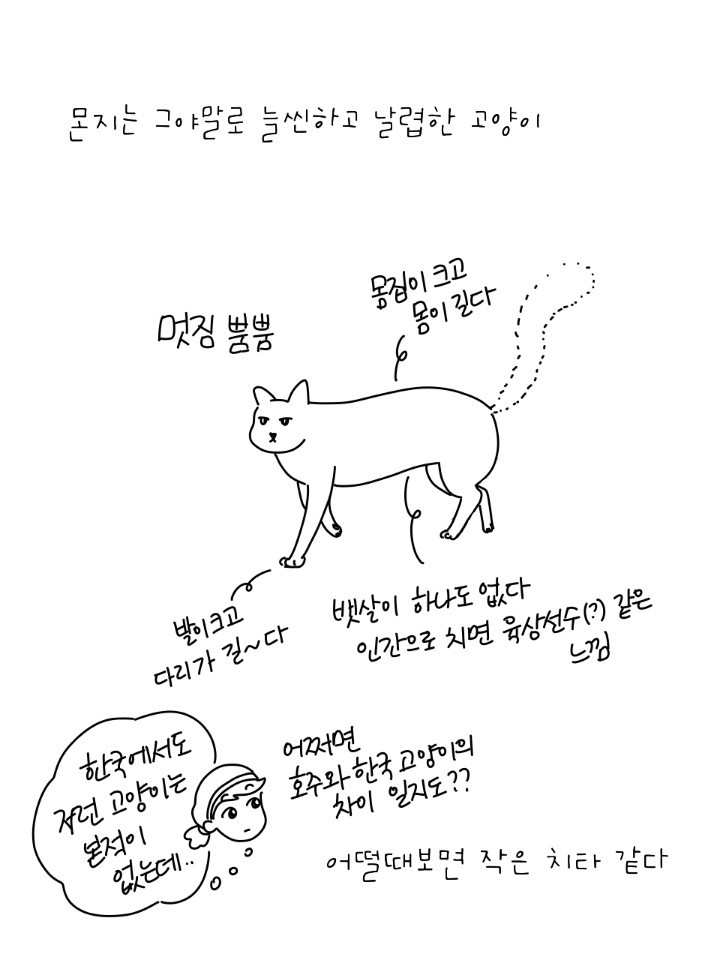 몬지는 그야말로 늘씬하고 날렵한 고양이
몸집이 크고
몸이 길다
멋짐 뿜뿜
발이 크고
다리가 길~다
뱃살이 하나도 없다
인간으로 치면 육상선수(?) 같은
느낌
한국에서도
저런 고양이는
본적이
없는데..
어쩌면
호주와 한국 고양이의
차이 일지도??
어떨때보면 작은 치타 같다